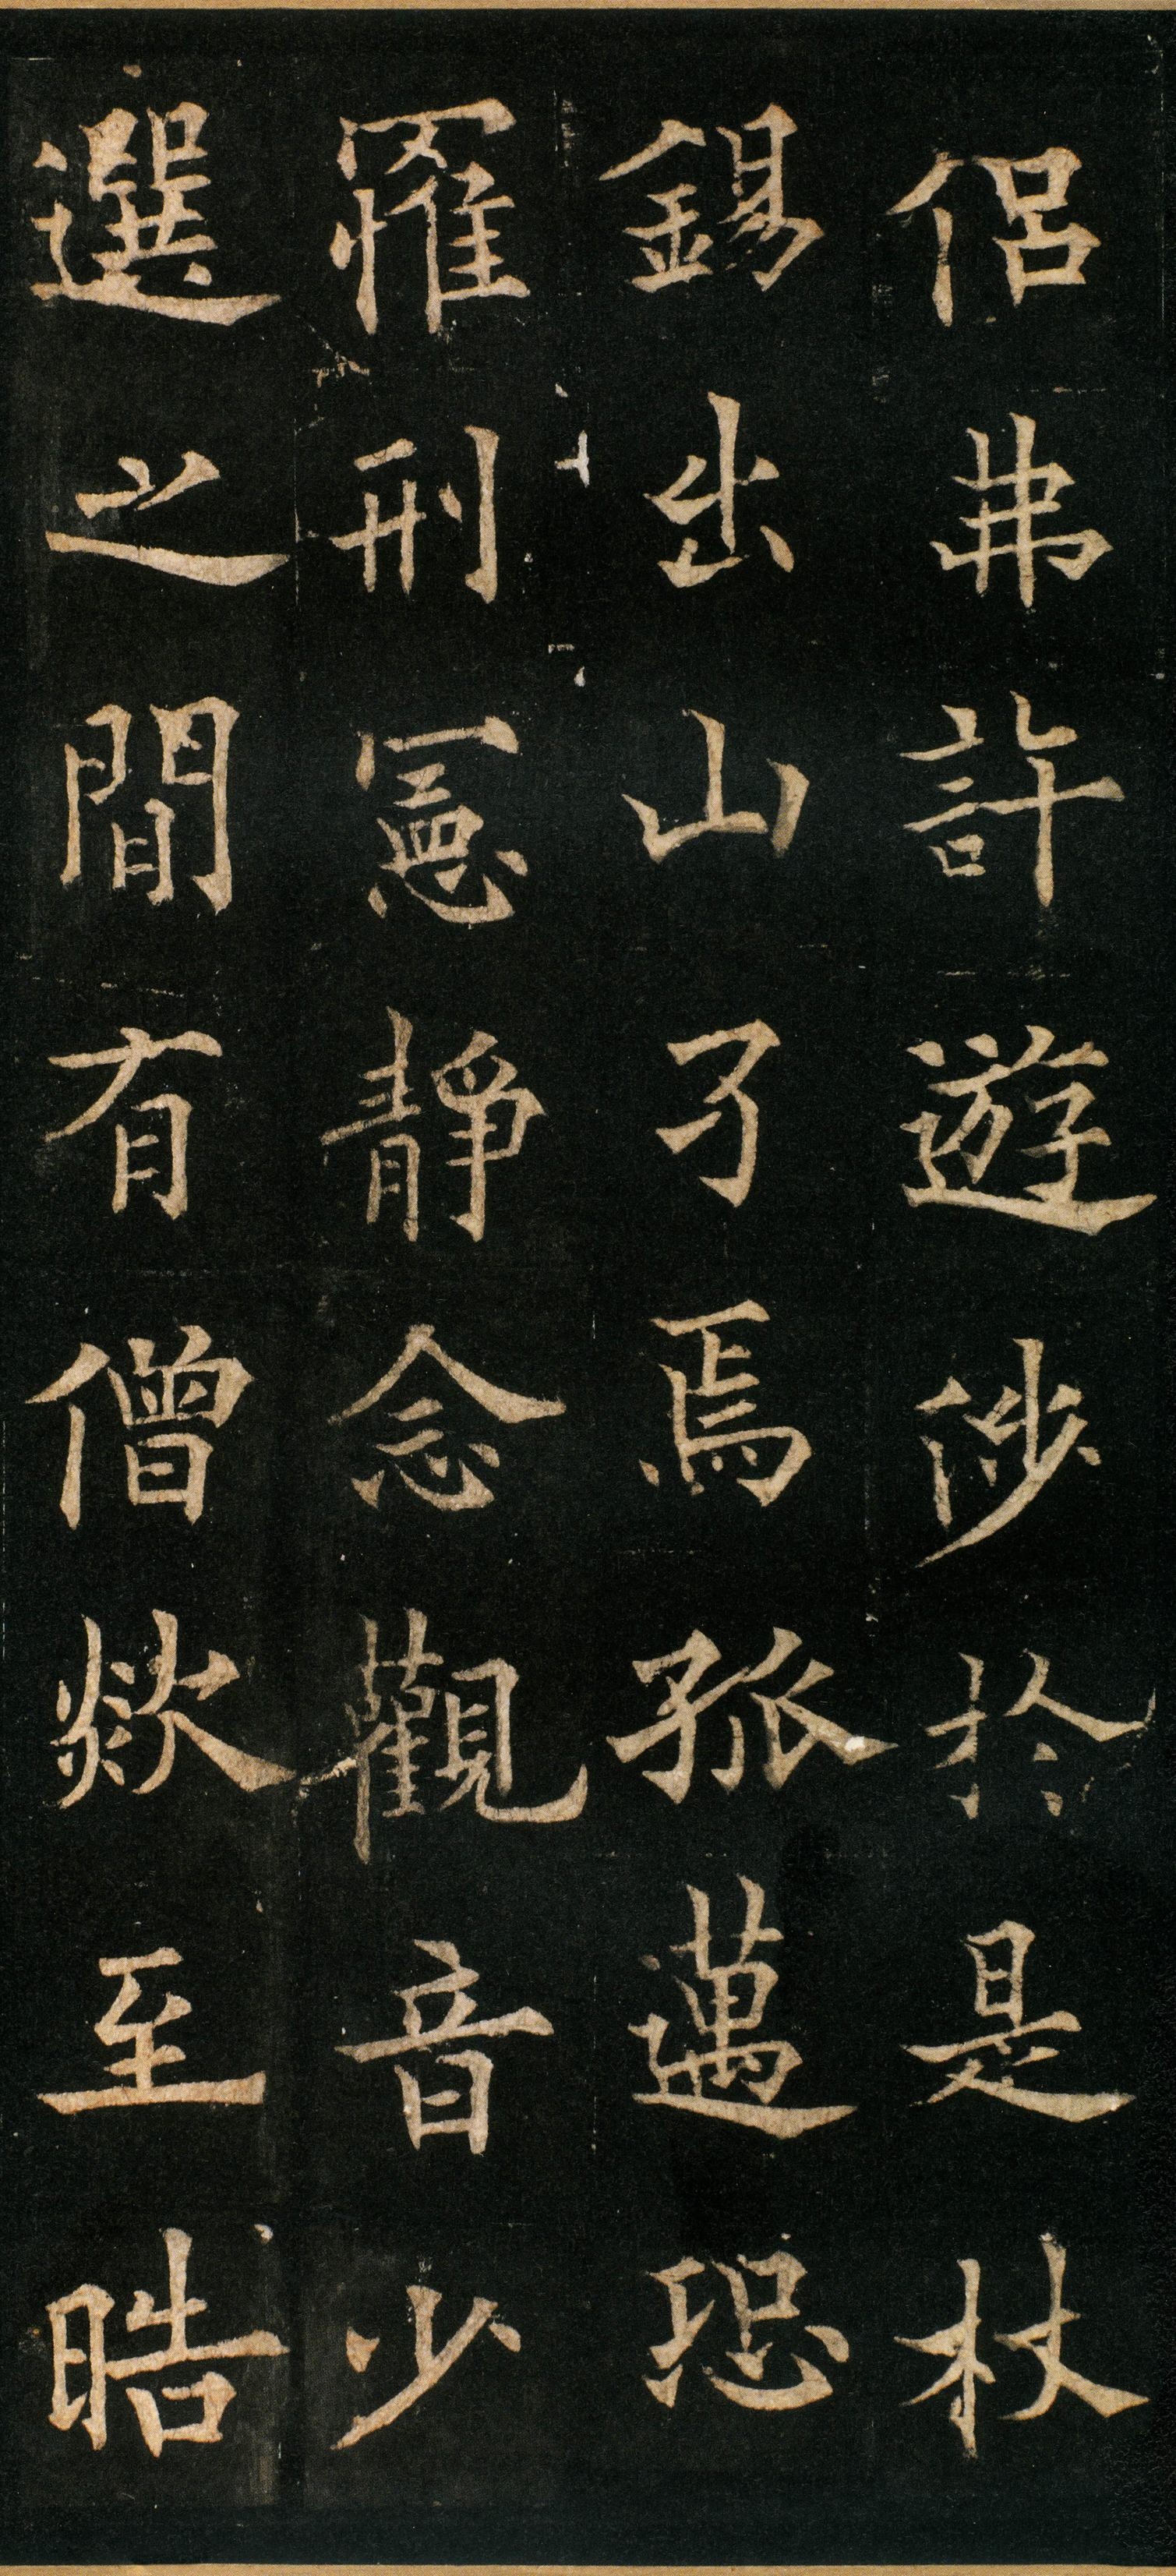 侣弗許遊涉於是杖
錫出山了焉孤邁恐
罹刑憲靜念觀音少
選之間有僧欻至皓